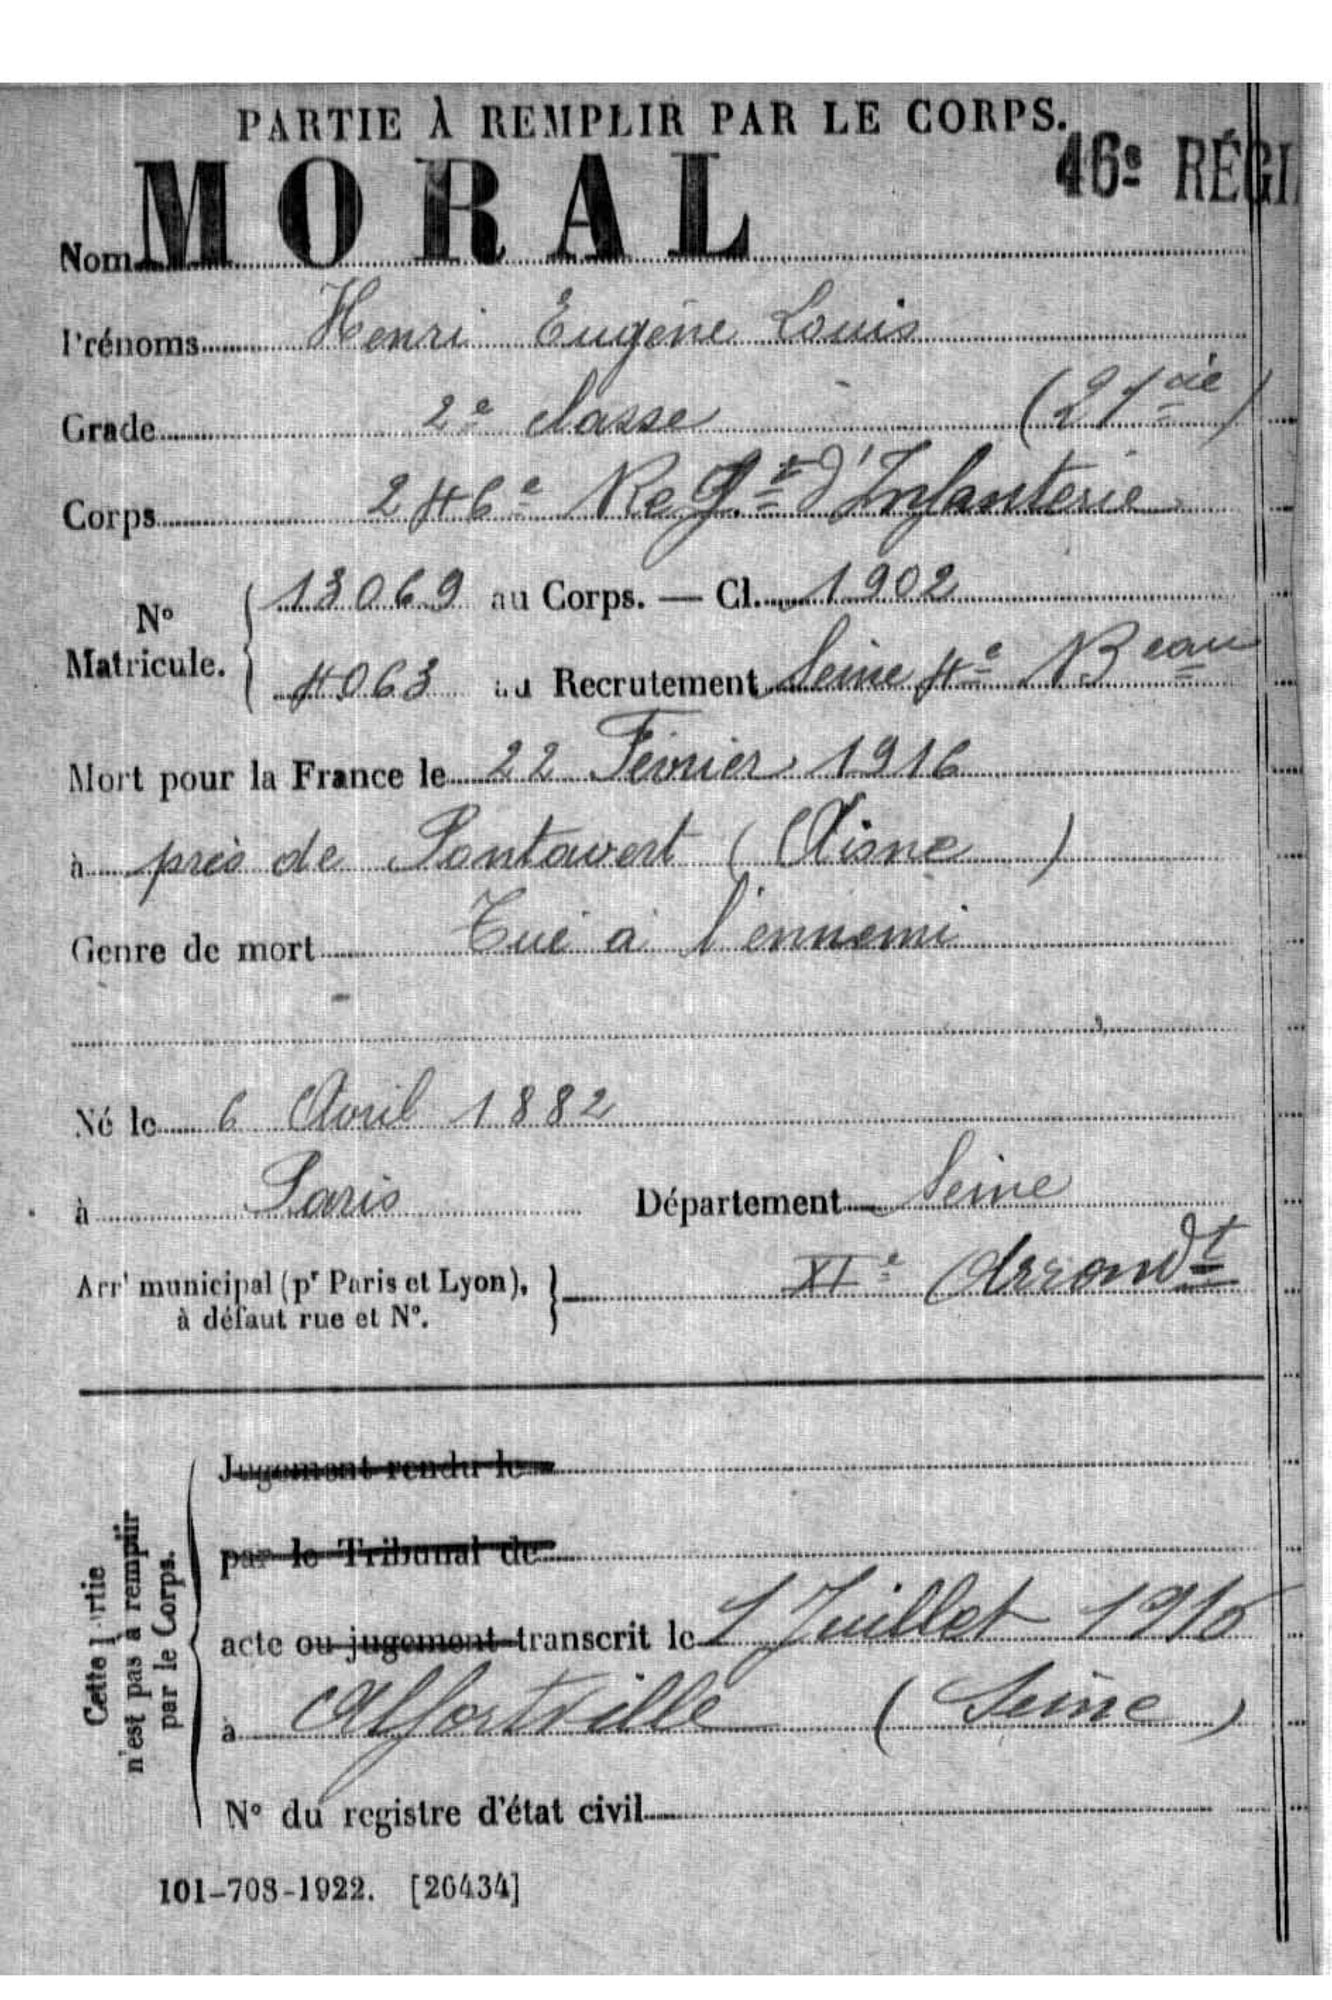 PARTIE À REMPLIR PAR LE CORPS.
46e RÉGI
Nom MORAL
Prénoms Henri Eugène Louis
Grade 2e classe (21e cie)
Corps 246e Régt d'Infanterie
No Matricule. { 13069 au Corps. — Cl. 1902
4063 au Recrutement Seine 4e Beau
Mort pour la France le 22 Février 1916
à près de Pontavert (Aisne)
Genre de mort Tué à l'ennemi
Né le 6 Avril 1882
à Paris Département Seine
Arrt municipal (pr Paris et Lyon), } XIe Arrondt
à défaut rue et No.
Cette partie n'est pas à remplir par le Corps.
Jugement rendu le
par le Tribunal de
acte ou jugement transcrit le 1 Juillet 1916
à Alfortville (Seine)
No du registre d'état civil
101-708-1922. [26434]